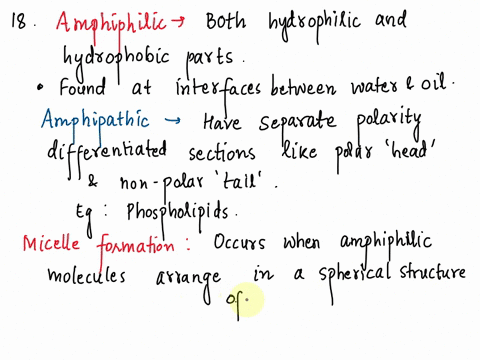 18. Amphiphilic → Both hydrophilic and
hydrophobic parts.
• Found at interfaces between water & oil.
Amphipathic → Have separate polarity
differentiated sections like polar 'head'
& non-polar 'tail'.
Eg : Phospholipids.
Micelle formation : Occurs when amphiphilic
molecules arrange in a spherical structure
of